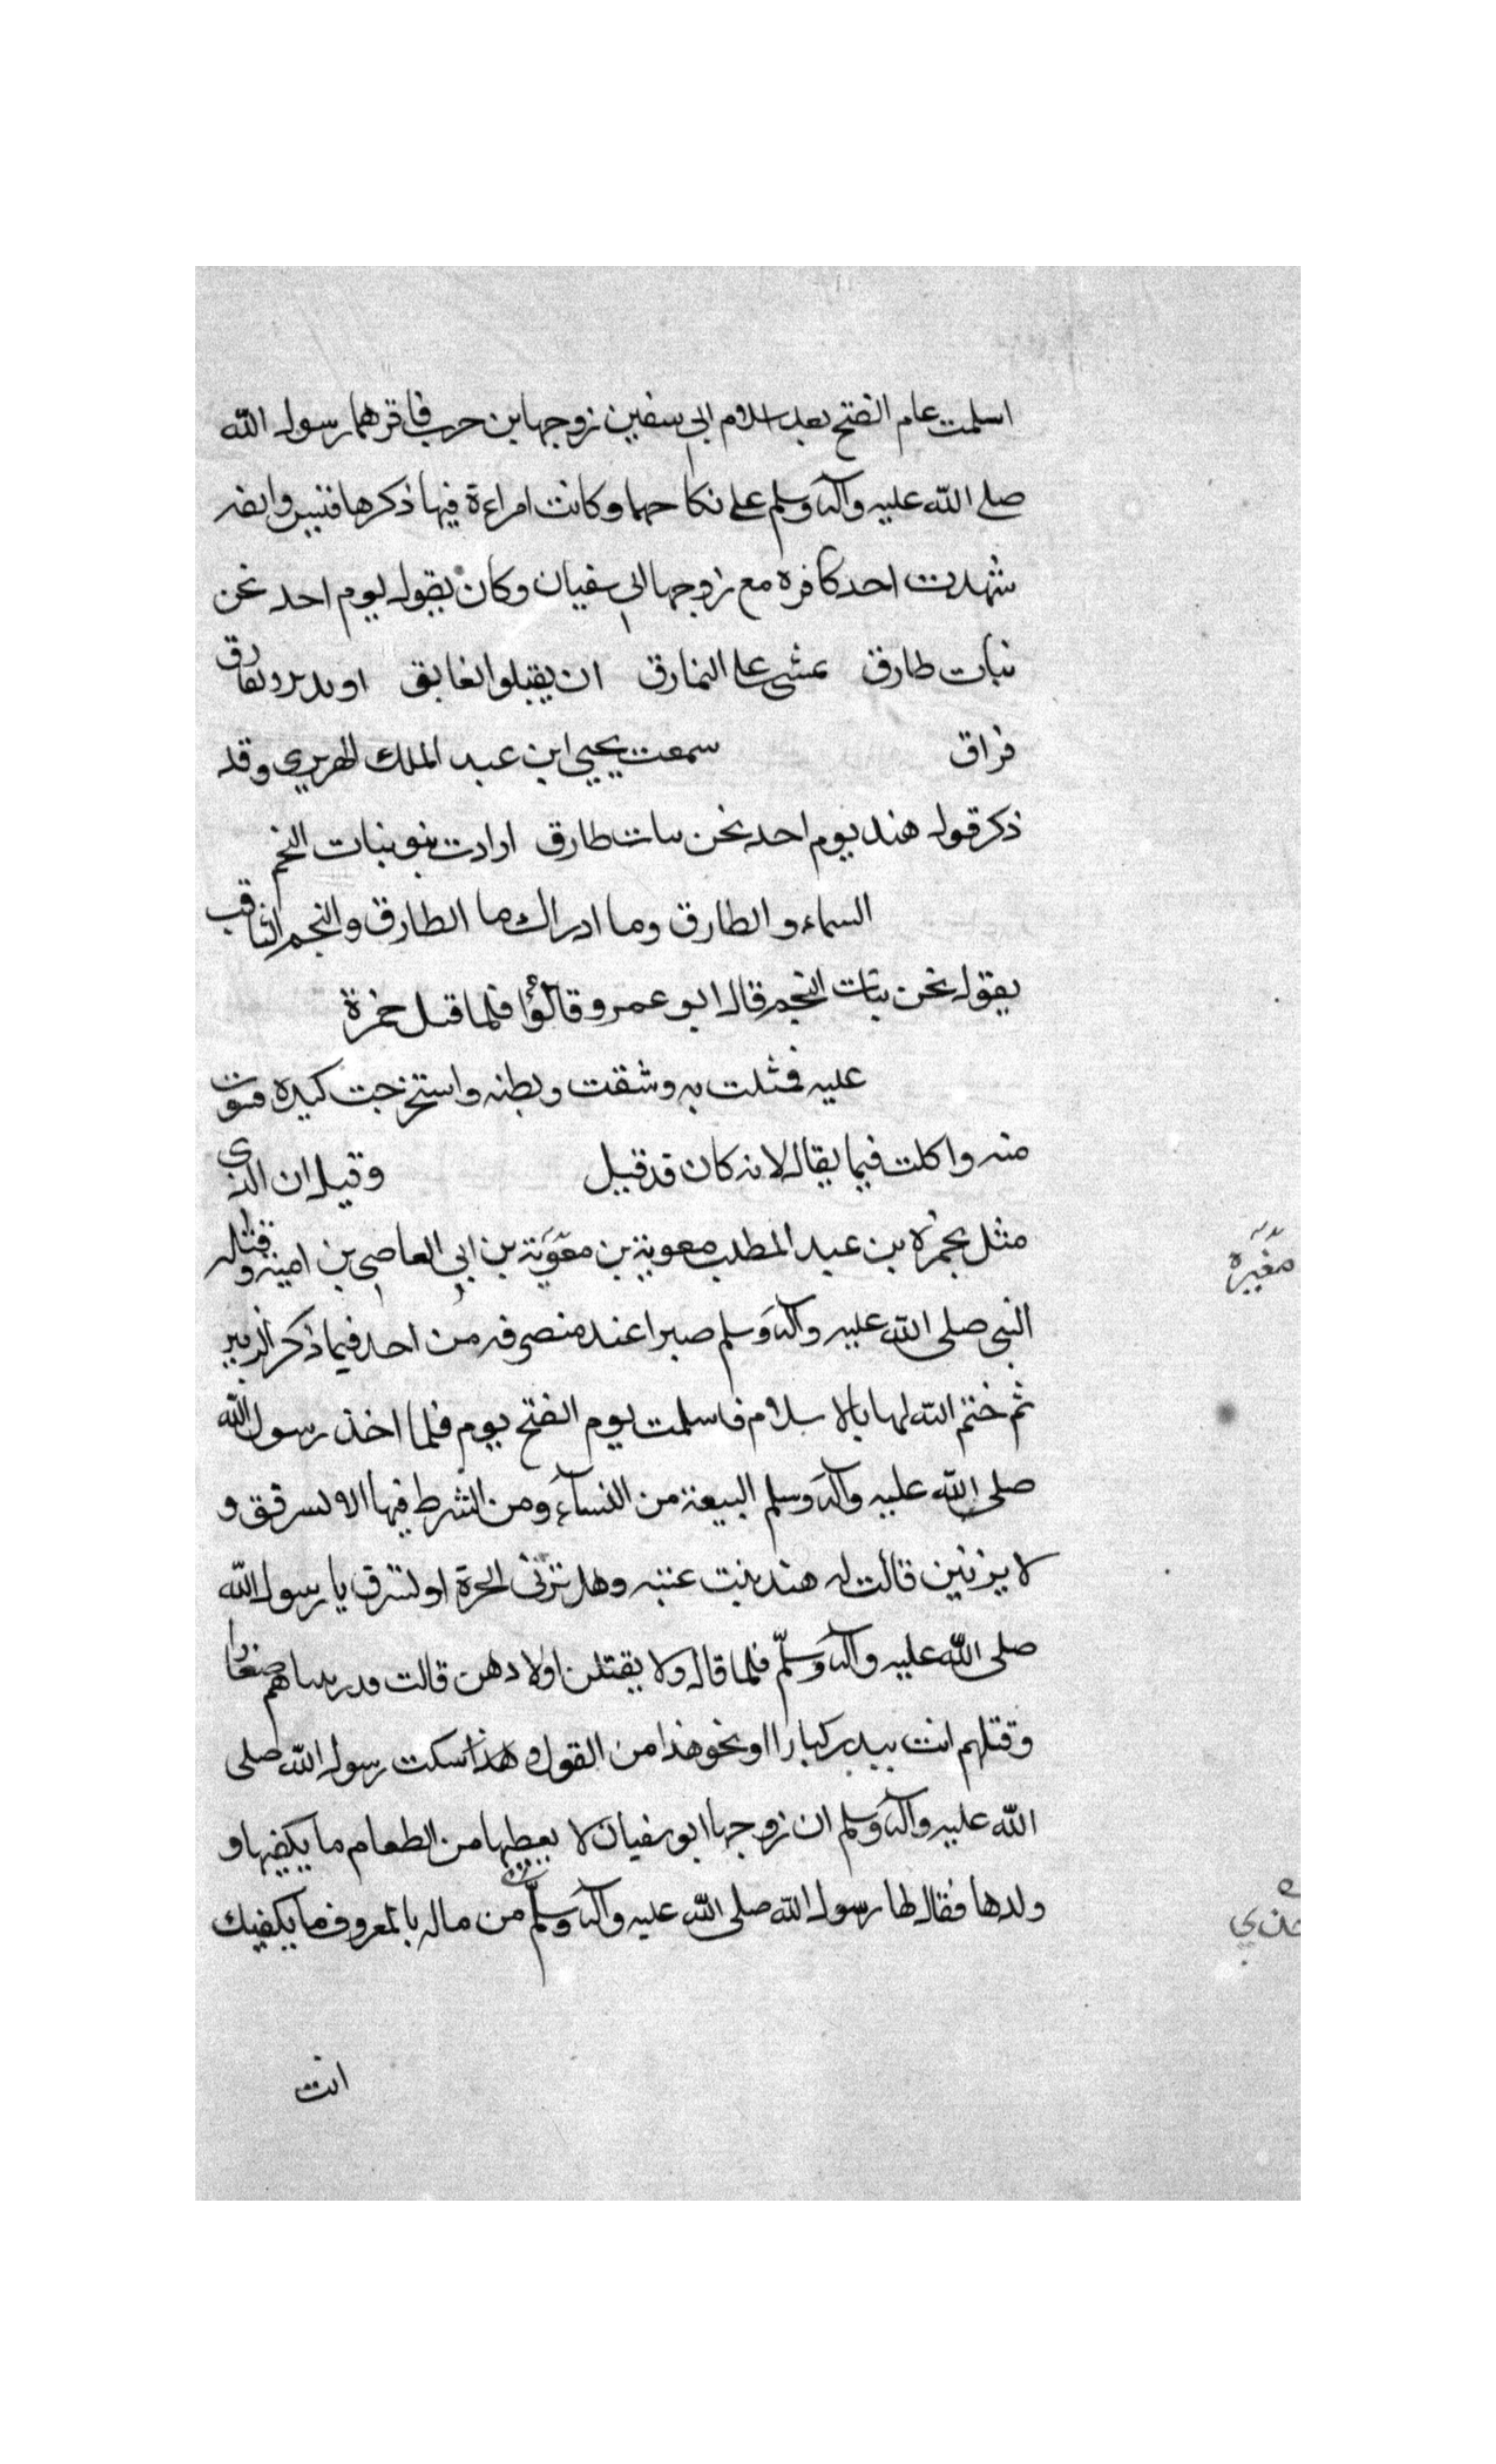 اسلمت عام الفتح بعد اسلام ابي سفين زوجها بن حرب فاقرهما رسول الله
صلى الله عليه وآله وسلم على نكاحهما وكانت امراءة فيها ذكرها
شهدت احد كافره مع زوجها ابي سفيان وكان يقول يوم احد نحن
نبات طارق نمشي على النمارق ان يقبلوا نعانق او
فراق سمعت يحيي ابن عبد الملك الهريري وقد
ذكر قول هند يوم احد نحن بنات طارق ارادت بنو بنات النجم
السماء والطارق وما ادراك ما الطارق والنجم الثاقب
يقول نحن بنات النجم قال ابو عمرو قالوا فلما قتل حمزة
عليه فمثلت به وشقت وبطنه واستخرجت كبده
منه واكلت فيما يقال لانه كان قد قيل وقيل ان الذي
مثل بحمزه بن عبد المطلب معوية بن مغوية بن ابي العاصي بن امية وقتله
النبي صلى الله عليه وآله وسلم صبرا عند منصرفه من احد فيما ذكر الزبير
ثم ختم الله لها بالاسلام فاسلمت يوم الفتح يوم فلما اخذ رسول الله
صلى الله عليه وآله وسلم البيعة من النساء ومن الشرط فيها الا لسرقق و
لا يزنين قالت له هند بنت عتبه وهل تزني الحرة او لتسرق يا رسول الله
صلى الله عليه وآله وسلم فلما قال ولا يقتلن اولادهن قالت قد ربيناهم صغارا
وقتلهم انت ببدر كبارا او نحو هذا من القول و هذا سكت رسول الله صلى
الله عليه وآله وسلم ان زوجها ابو سفيان لا يعطيها من الطعام ما يكفيها و
ولدها فقال لها رسول الله صلى الله عليه وآله وسلم من ماله بالمعروف ما يكفيك
انت
مغيره
خذي